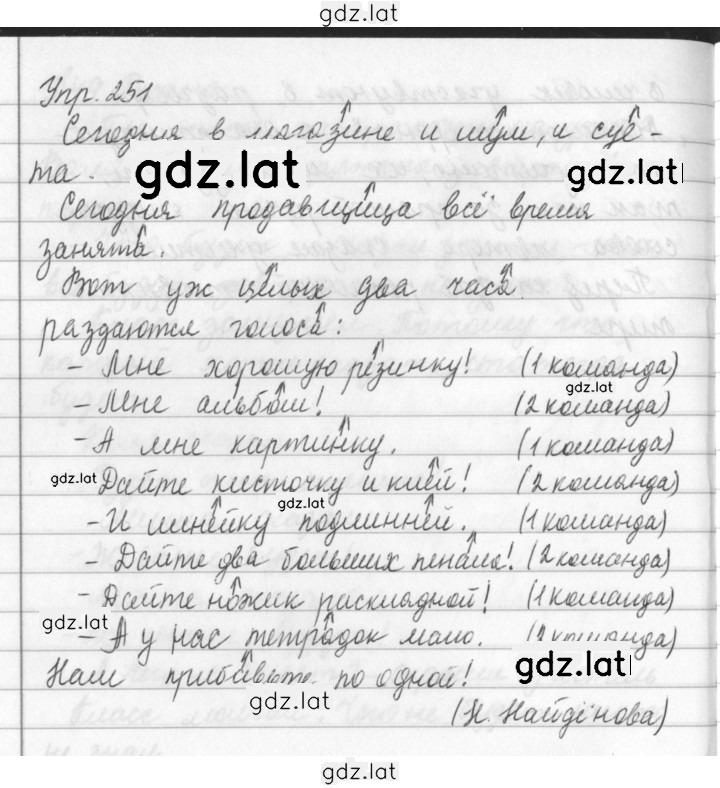 gdz.lat
Упр. 251
Сегодня в магазине и шум, и суе-
та.
gdz.lat
gdz.lat
Сегодня продавщица всё время
занята.
Вот уж целых два часа
раздаются голоса:
- Мне хорошую резинку! (1 команда)
gdz.lat
- Мне альбом! (2 команда)
- А мне картинку. (1 команда)
gdz.lat
Дайте кисточку и клей! (2 команда)
gdz.lat
- И линейку подлинней. (1 команда)
- Дайте два больших пенала! (2 команда)
- Дайте ножик раскладной! (1 команда)
gdz.lat
- А у нас тетрадок мало. (2 команда)
gdz.lat
Нам прибавьте по одной!
gdz.lat
(Н. Найдёнова)
gdz.lat